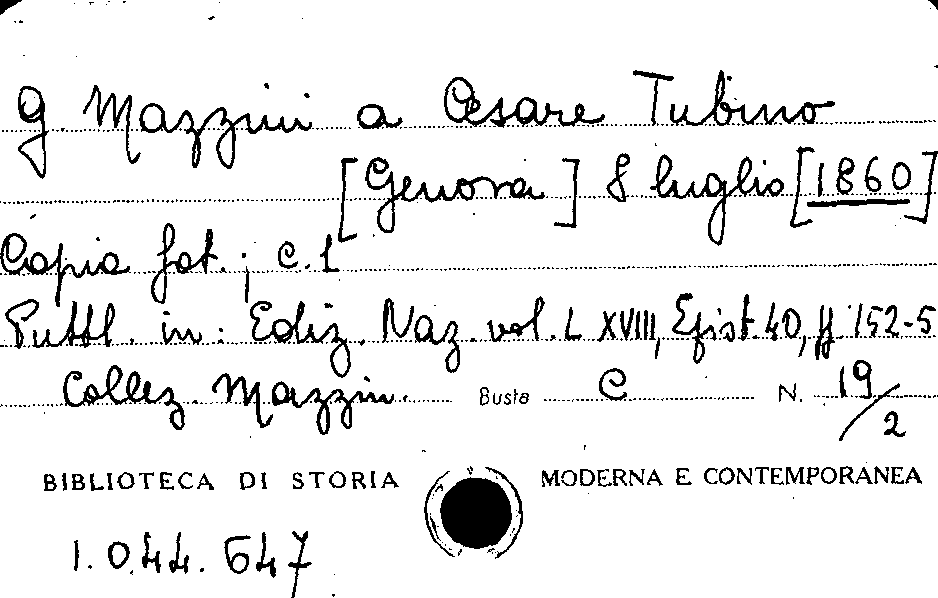 G. Mazzini a Cesare Tubino
[Genova] 8 luglio [1860]
Copia fot.; c. 1
Pubbl. in: Ediz. Naz. vol. LXVIII, Epist. 40, pp. 152-5
Collez. Mazzin. Busta C N. 19/2
BIBLIOTECA DI STORIA MODERNA E CONTEMPORANEA
1.044.647